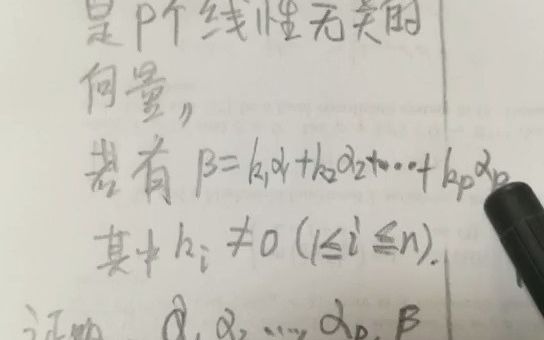 是p个线性无关的
向量,
若有 β=k₁α₁+k₂α₂+…+kₚαₚ
其中kᵢ≠0 (1≤i≤n).
证明 α₁, α₂, …, αₚ, β